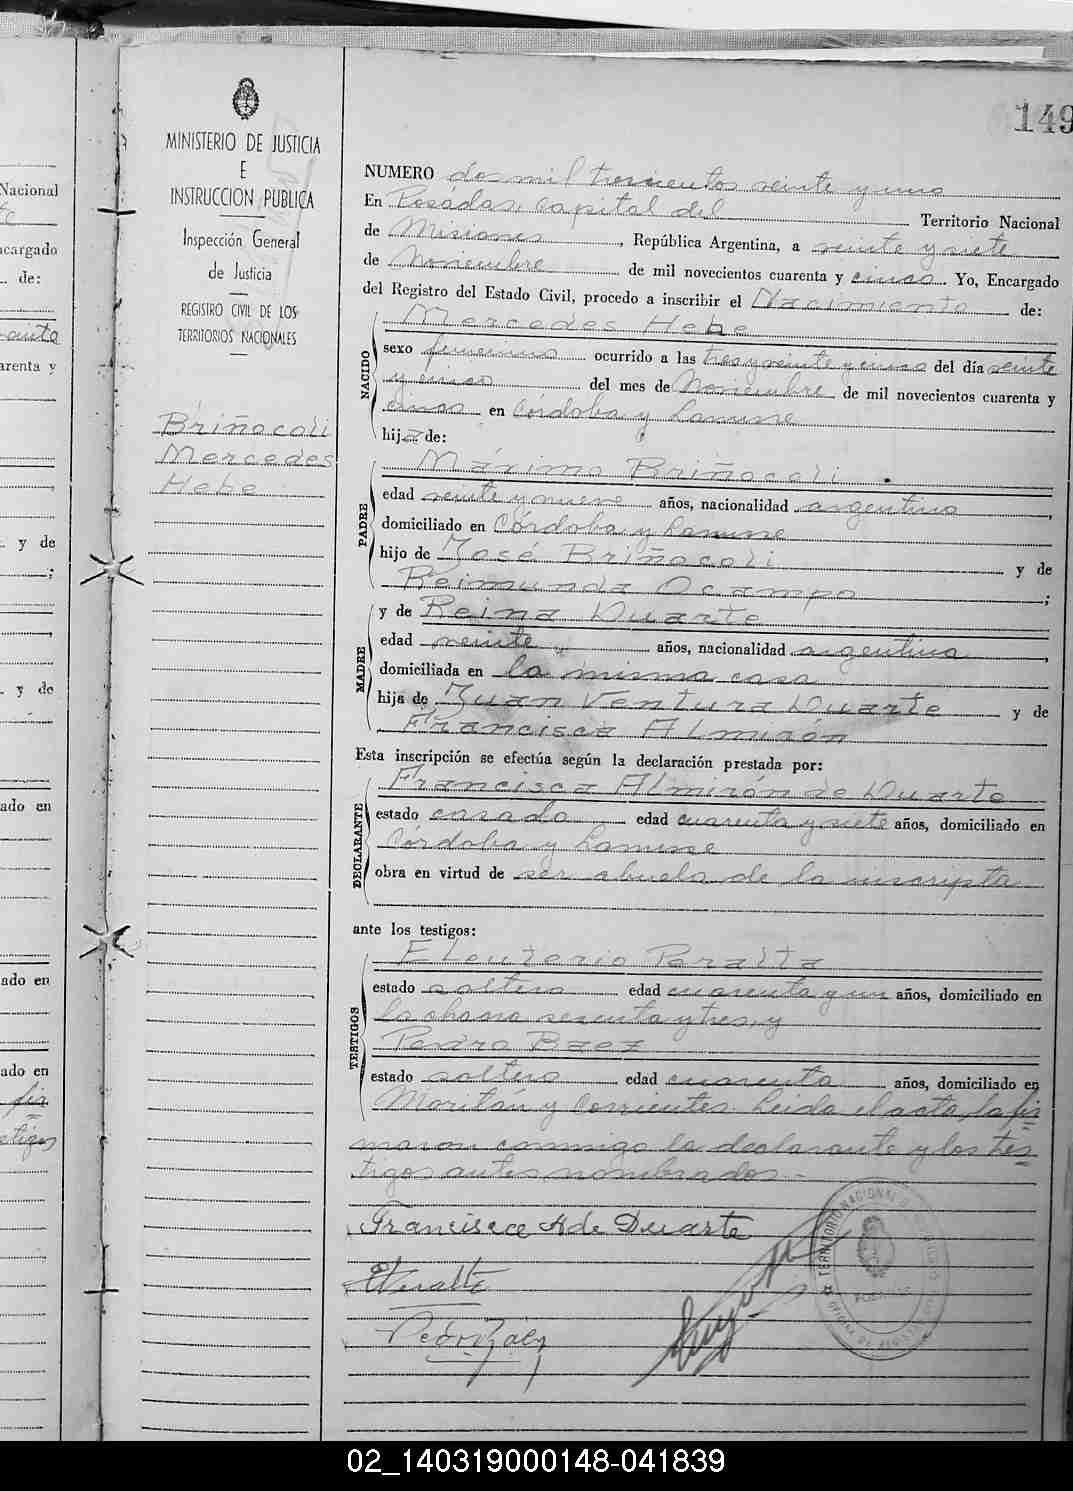 149
MINISTERIO DE JUSTICIA
E
INSTRUCCION PUBLICA
Inspección General
de Justicia
REGISTRO CIVIL DE LOS
TERRITORIOS NACIONALES
Briñocoli
Mercedes
Hebe
Nacional
encargado
de:
arenta y
y de
;
y de
ado en
ado en
ado en
NUMERO dos mil trescientos veinte y uno
En Posadas, Capital del Territorio Nacional
de Misiones, República Argentina, a veinte y siete
de Noviembre de mil novecientos cuarenta y cinco. Yo, Encargado
del Registro del Estado Civil, procedo a inscribir el Nacimiento de:
NACIDO
Mercedes Hebe
sexo femenino ocurrido a las tres y veinte y cinco del día veinte
y cinco del mes de Noviembre de mil novecientos cuarenta y
cinco en Córdoba y Lanusse
hija de:
PADRE
Máximo Briñocoli.
edad veinte y nueve años, nacionalidad argentina,
domiciliado en Córdoba y Lanusse
hijo de José Briñocoli y de
Reimunda Ocampo;
MADRE
y de Reina Duarte
edad veinte años, nacionalidad argentina,
domiciliada en la misma casa
hija de Juan Ventura Duarte y de
Francisca Almirón
Esta inscripción se efectúa según la declaración prestada por:
DECLARANTE
Francisca Almirón de Duarte
estado casada edad cuarenta y siete años, domiciliado en
Córdoba y Lanusse
obra en virtud de ser abuela de la inscripta
ante los testigos:
TESTIGOS
Eleuterio Peralta
estado soltero edad cuarenta y un años, domiciliado en
la chacra sesenta y tres, y
Pedro Baez
estado soltero edad cuarenta años, domiciliado en
Moritán y Corrientes. Leida el acta, la fir=
maron conmigo la declarante y los tes=
tigos antes nombrados.-
Francisca A de Duarte
EPeralta
Pedro Baez
TERRITORIO NACIONAL
02_140319000148-041839